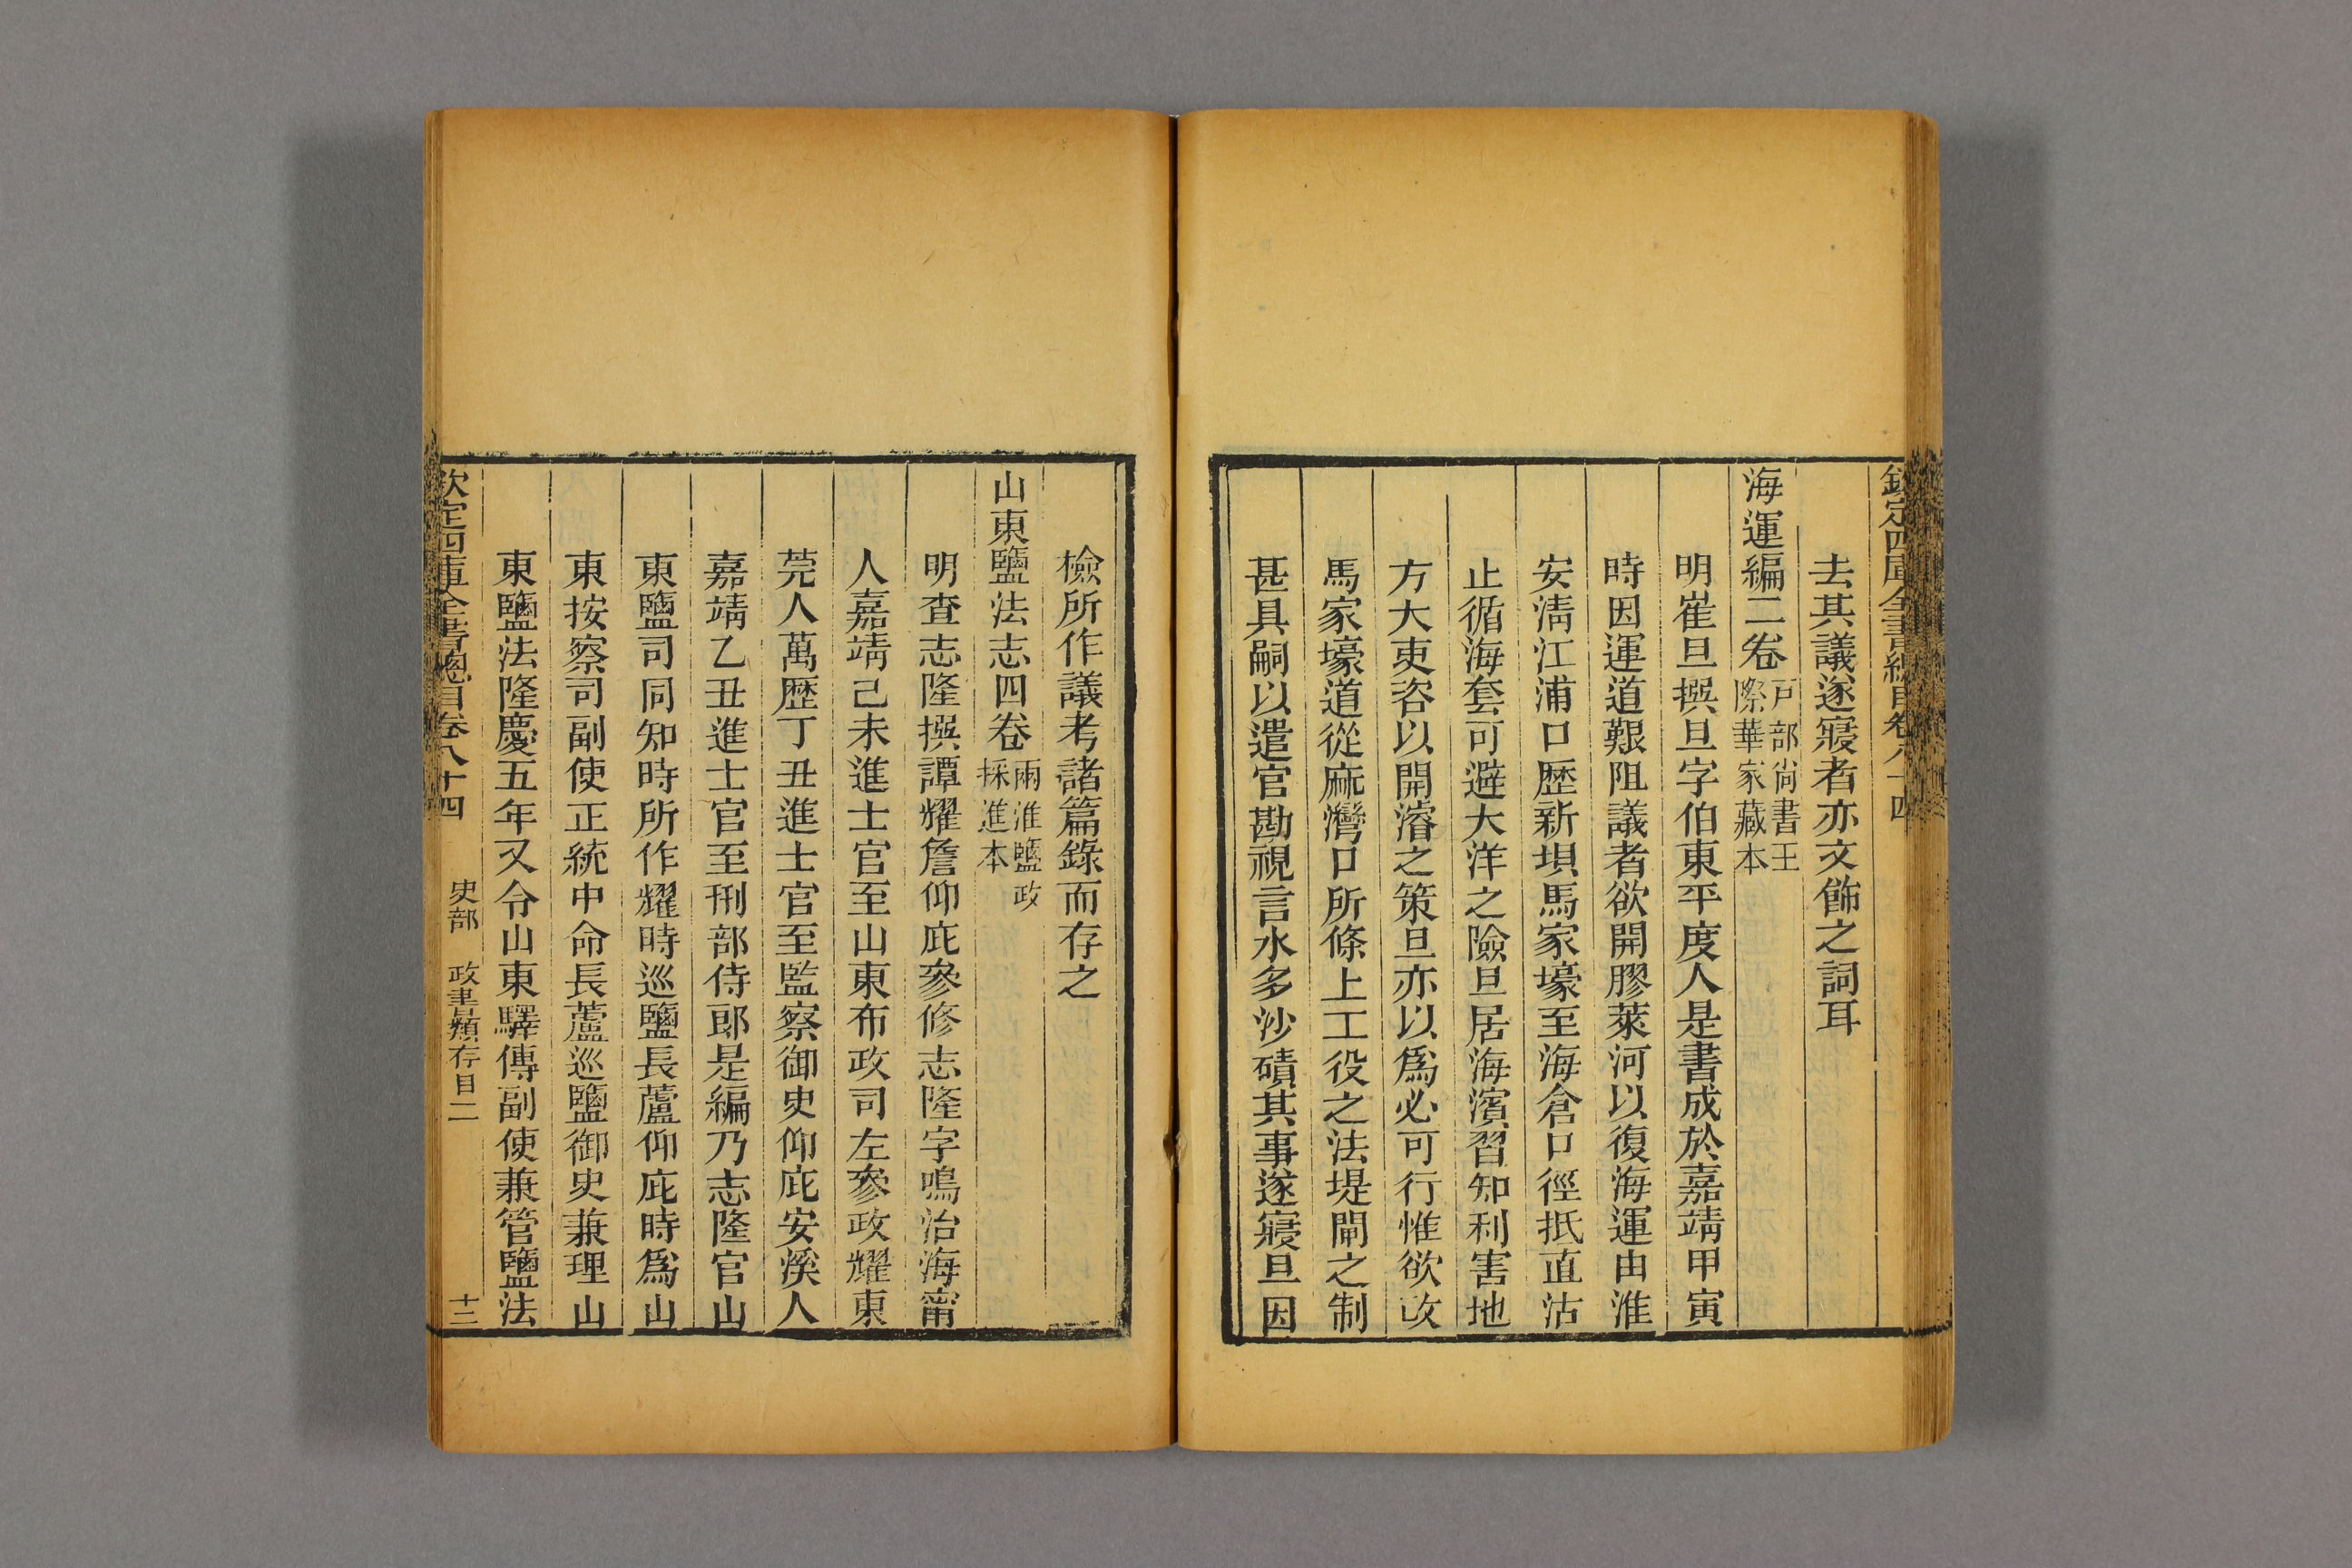 欽定四庫全書總目卷八十四
去其議遂寢者亦文飾之詞耳
海運編二卷戸部尚書王際華家藏本
明崔旦撰旦字伯東平度人是書成於嘉靖甲寅
時因運道艱阻議者欲開膠萊河以復海運由淮
安淸江浦口歷新壩馬家壕至海倉口徑抵直沽
止循海套可避大洋之險旦居海濱習知利害地
方大吏咨以開濬之策旦亦以爲必可行惟欲改
馬家壕道從麻灣口所條上工役之法堤閘之制
甚具嗣以遣官勘視言水多沙磧其事遂寢旦因
檢所作議考諸篇錄而存之
山東鹽法志四卷兩淮鹽政採進本
明查志隆撰譚耀詹仰庇參修志隆字鳴治海甯
人嘉靖己未進士官至山東布政司左參政耀東
莞人萬歷丁丑進士官至監察御史仰庇安溪人
嘉靖乙丑進士官至刑部侍郎是編乃志隆官山
東鹽司同知時所作耀時巡鹽長蘆仰庇時爲山
東按察司副使正統中命長蘆巡鹽御史兼理山
東鹽法隆慶五年又令山東驛傳副使兼管鹽法
欽定四庫全書總目卷八十四 史部 政書類存目二 十三